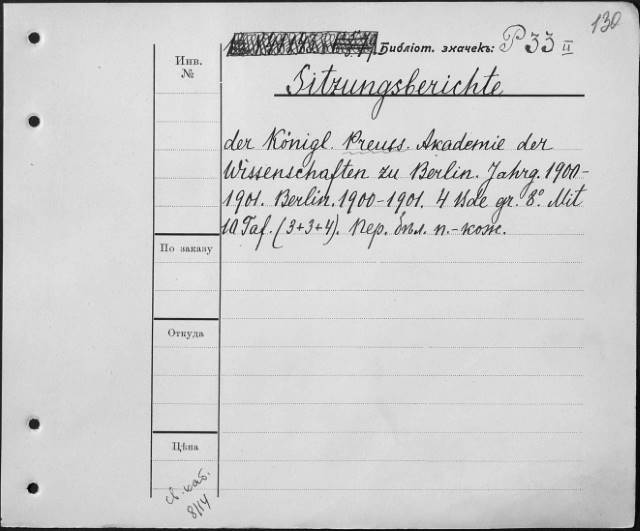 130
Библіот. значекъ: P 33 II
Инв.
№
Sitzungsberichte
der Königl. Preuss. Akademie der
Wissenschaften zu Berlin. Jahrg. 1900-
1901. Berlin. 1900-1901. 4 Bde gr. 8°. Mit
10 Taf. (3+3+4). Пер. бѣл. п.-кож.
По заказу
Откуда
Цѣна
8/14